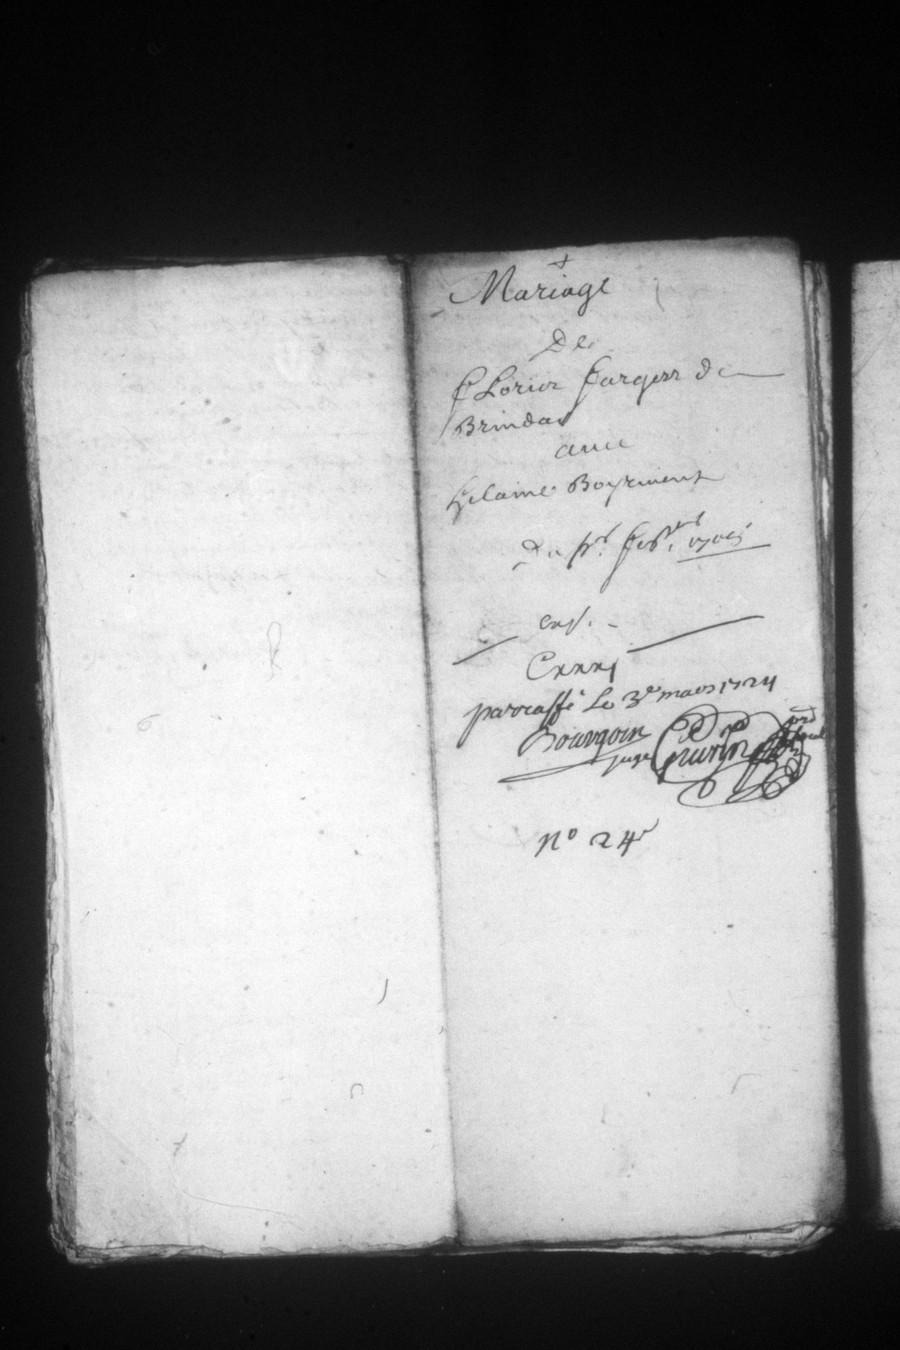 +
Mariage
De
fLorier fargers de
Brindas
avec
helaine Boyriment
Du pr. febver 
Cxxxj
parraffé Le 3e mars 1724
Bourgoin
juge
no 24